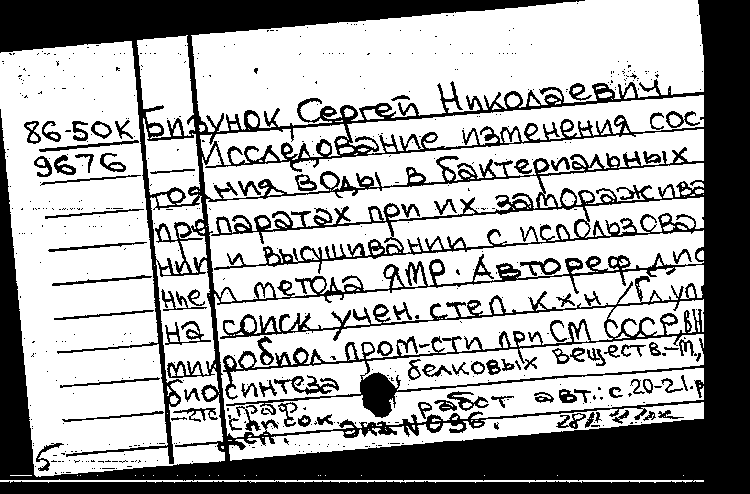 86-50К Бизунок, Сергей Николаевич.
9676 Исследование изменения сос-
тояния воды в бактериальных
препаратах при их заморажива
нии и высушивании с использова
нием метода ЯМР. Автореф. дис
на соиск. учен. степ. к.х.н. /Гл.уп
микробиол. пром-сти при СМ СССР.
биосинтеза белковых веществ.-М.,
граф.
список работ авт.: с.20-21.
деп. экз N036.
5